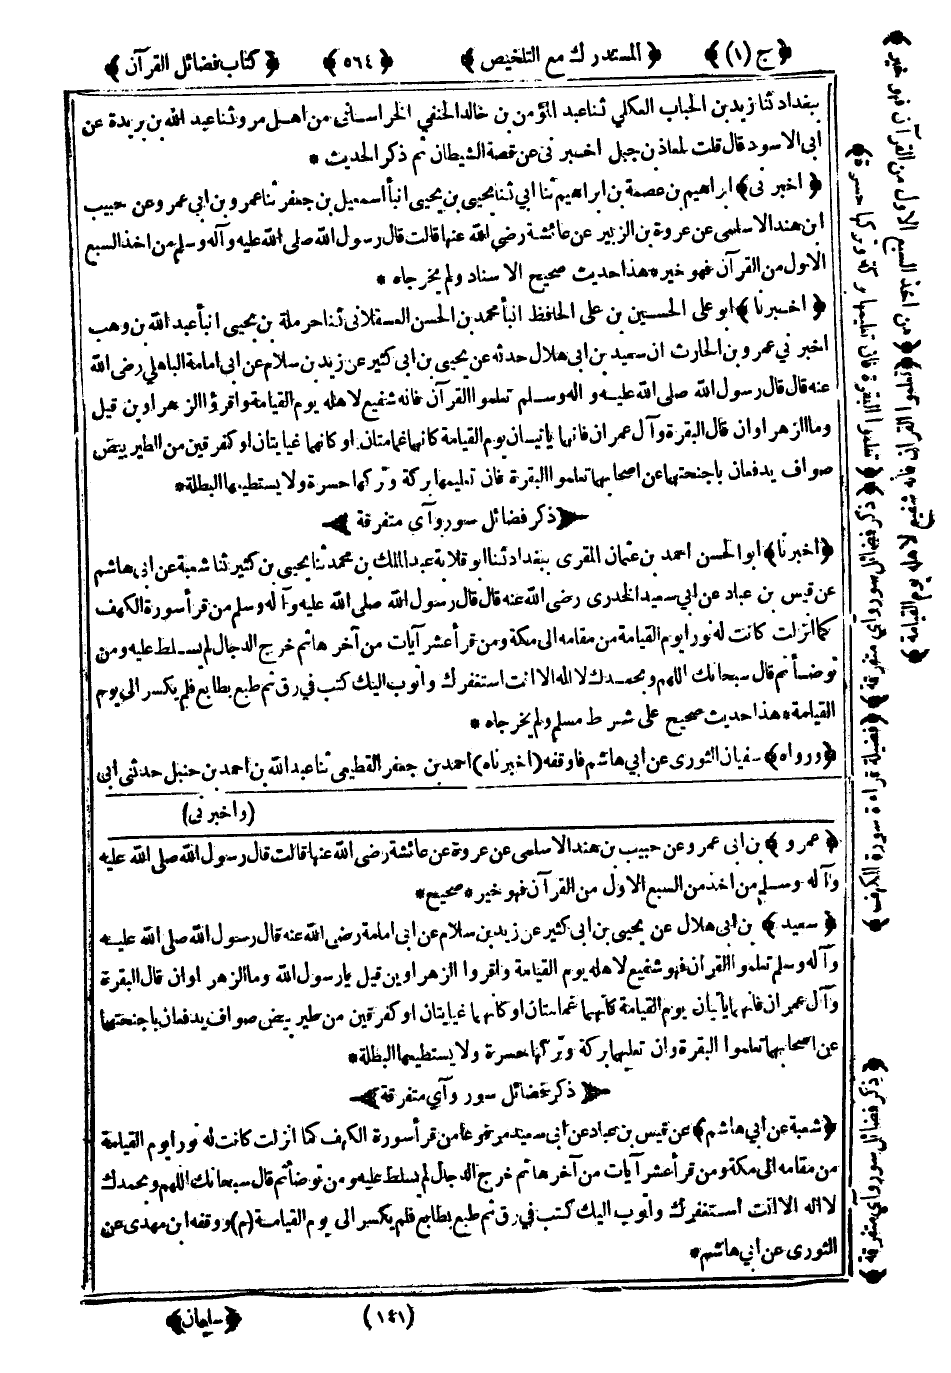 ﴿ ج (١) ﴾ ﴿ المستدرك مع التلخيص ﴾ ﴿ ٥٦٤ ﴾ ﴿ كتاب فضائل القرآن ﴾
ببغداد ثنا زيد بن الحباب العكلي ثنا عبد المؤمن بن خالد الحنفي الخراسانى من اهل مرو ثنا عبد الله بن بريدة عن
ابى الاسود قال قلت لمعاذ بن جبل اخبرنى عن قصة الشيطان ثم ذكر الحديث *
﴿ اخبرنى ﴾ ابراهيم بن عصمة بن ابراهيم ثنا ابي ثنا يحيى بن يحيى انبأ اسمعيل بن جعفر ثنا عمرو بن ابى عمرو عن حبيب
ابن هند الاسلمى عن عروة بن الزبير عن عائشة رضى الله عنها قالت قال رسول الله صلى الله عليه وآله وسلم من اخذ السبع
الاول من القرآن فهو خير * هذا حديث صحيح الاسناد ولم يخرجاه *
﴿ اخبرنا ﴾ ابو على الحسين بن على الحافظ انبأ محمد بن الحسن العسقلانى ثنا حرملة بن يحيى انبأ عبد الله بن وهب
اخبرني عمرو بن الحارث ان سعيد بن ابى هلال حدثه عن يحيى بن ابى كثير عن زيد بن سلام عن ابى امامة الباهلي رضى الله
عنه قال قال رسول الله صلى الله عليه و اله وسلم تعلموا القرآن فانه شفيع لاهله يوم القيامة واقرؤا الزهراوين قيل
وما الزهراوان قال البقرة وآل عمران فانهما يأتيان يوم القيامة كانهما غمامتان او كانهما غيايتان او كفرقين من الطير بيض
صواف يدفعان باجنحتهما عن اصحابهما تعلموا البقرة فان تعليمها بركة وتركها حسرة ولا يستطيعها البطلة *
﴿ ذكر فضائل سور وآي متفرقة ﴾
﴿ اخبرنا ﴾ ابو الحسن احمد بن عثمان المقرى ببغداد ثنا ابو قلابة عبد الملك بن محمد ثنا يحيى بن كثير ثنا شعبة عن ابى هاشم
عن قيس بن عباد عن ابي سعيد الخدرى رضى الله عنه قال قال رسول الله صلى الله عليه وآله وسلم من قرأ سورة الكهف
كما انزلت كانت له نورا يوم القيامة من مقامه الى مكة ومن قرأ عشر آيات من آخرها ثم خرج الدجال لم يسلط عليه ومن
توضأ ثم قال سبحانك اللهم وبحمدك لا اله الا انت استغفرك واتوب اليك كتب في رق ثم طبع بطابع فلم يكسر الى يوم
القيامة * هذا حديث صحيح على شرط مسلم ولم يخرجاه *
﴿ ورواه ﴾ سفيان الثورى عن ابي هاشم فاوقفه (اخبرناه) احمد بن جعفر القطيعى ثنا عبد الله بن احمد بن حنبل حدثنى ابى
(واخبرنى)
﴿ عمرو ﴾ بن ابى عمرو عن حبيب بن هند الاسلمى عن عروة عن عائشة رضى الله عنها قالت قال رسول الله صلى الله عليه
وآله وسلم من اخذ من السبع الاول من القرآن فهو خير * صحيح *
﴿ سعيد ﴾ بن ابى هلال عن يحيى بن ابى كثير عن زيد بن سلام عن ابى امامة رضى الله عنه قال رسول الله صلى الله عليه
وآله وسلم تعلموا القرآن فهو شفيع لاهله يوم القيامة واقروا الزهراوين قيل يارسول الله وما الزهراوان قال البقرة
وآل عمران فانهما ياتيان يوم القيامة كأنهما غمامتان او كانهما غيايتان او كفرقين من طير بيض صواف يدفعان باجنحتهما
عن اصحابهما تعلموا البقرة وان تعلمها بركة وتركها حسرة ولا يستطيعها البطلة *
﴿ ذكر فضائل سور وآي متفرقة ﴾
﴿ شعبة عن ابي هاشم ﴾ عن قيس بن عباد عن ابى سعيد مرفوعا من قرأ سورة الكهف كما انزلت كانت له نورا يوم القيامة
من مقامه الى مكة ومن قرأ عشر آيات من آخرها ثم خرج الدجال لم يسلط عليه ومن توضأ ثم قال سبحانك اللهم وبحمدك
لا اله الا انت استغفرك واتوب اليك كتب في رق ثم طبع بطابع فلم يكسر الى يوم القيامة (م) ووقفه ابن مهدى عن
الثورى عن ابي هاشم *
﴿ من اخذ السبع الاول من القرآن فهو خير ﴾
﴿ تعلموا القرآن فانه شفيع لاهله يوم القيامة ﴾
﴿ تعلموا البقرة فان تعليمها بركة وتركها حسرة ﴾
﴿ ذكر فضائل سور وآي متفرقة ﴾
﴿ فضيلة قراءة سورة الكهف ﴾
﴿ ذكر فضائل سور وآي متفرقة ﴾
(١٤١) ﴿ سليمان ﴾